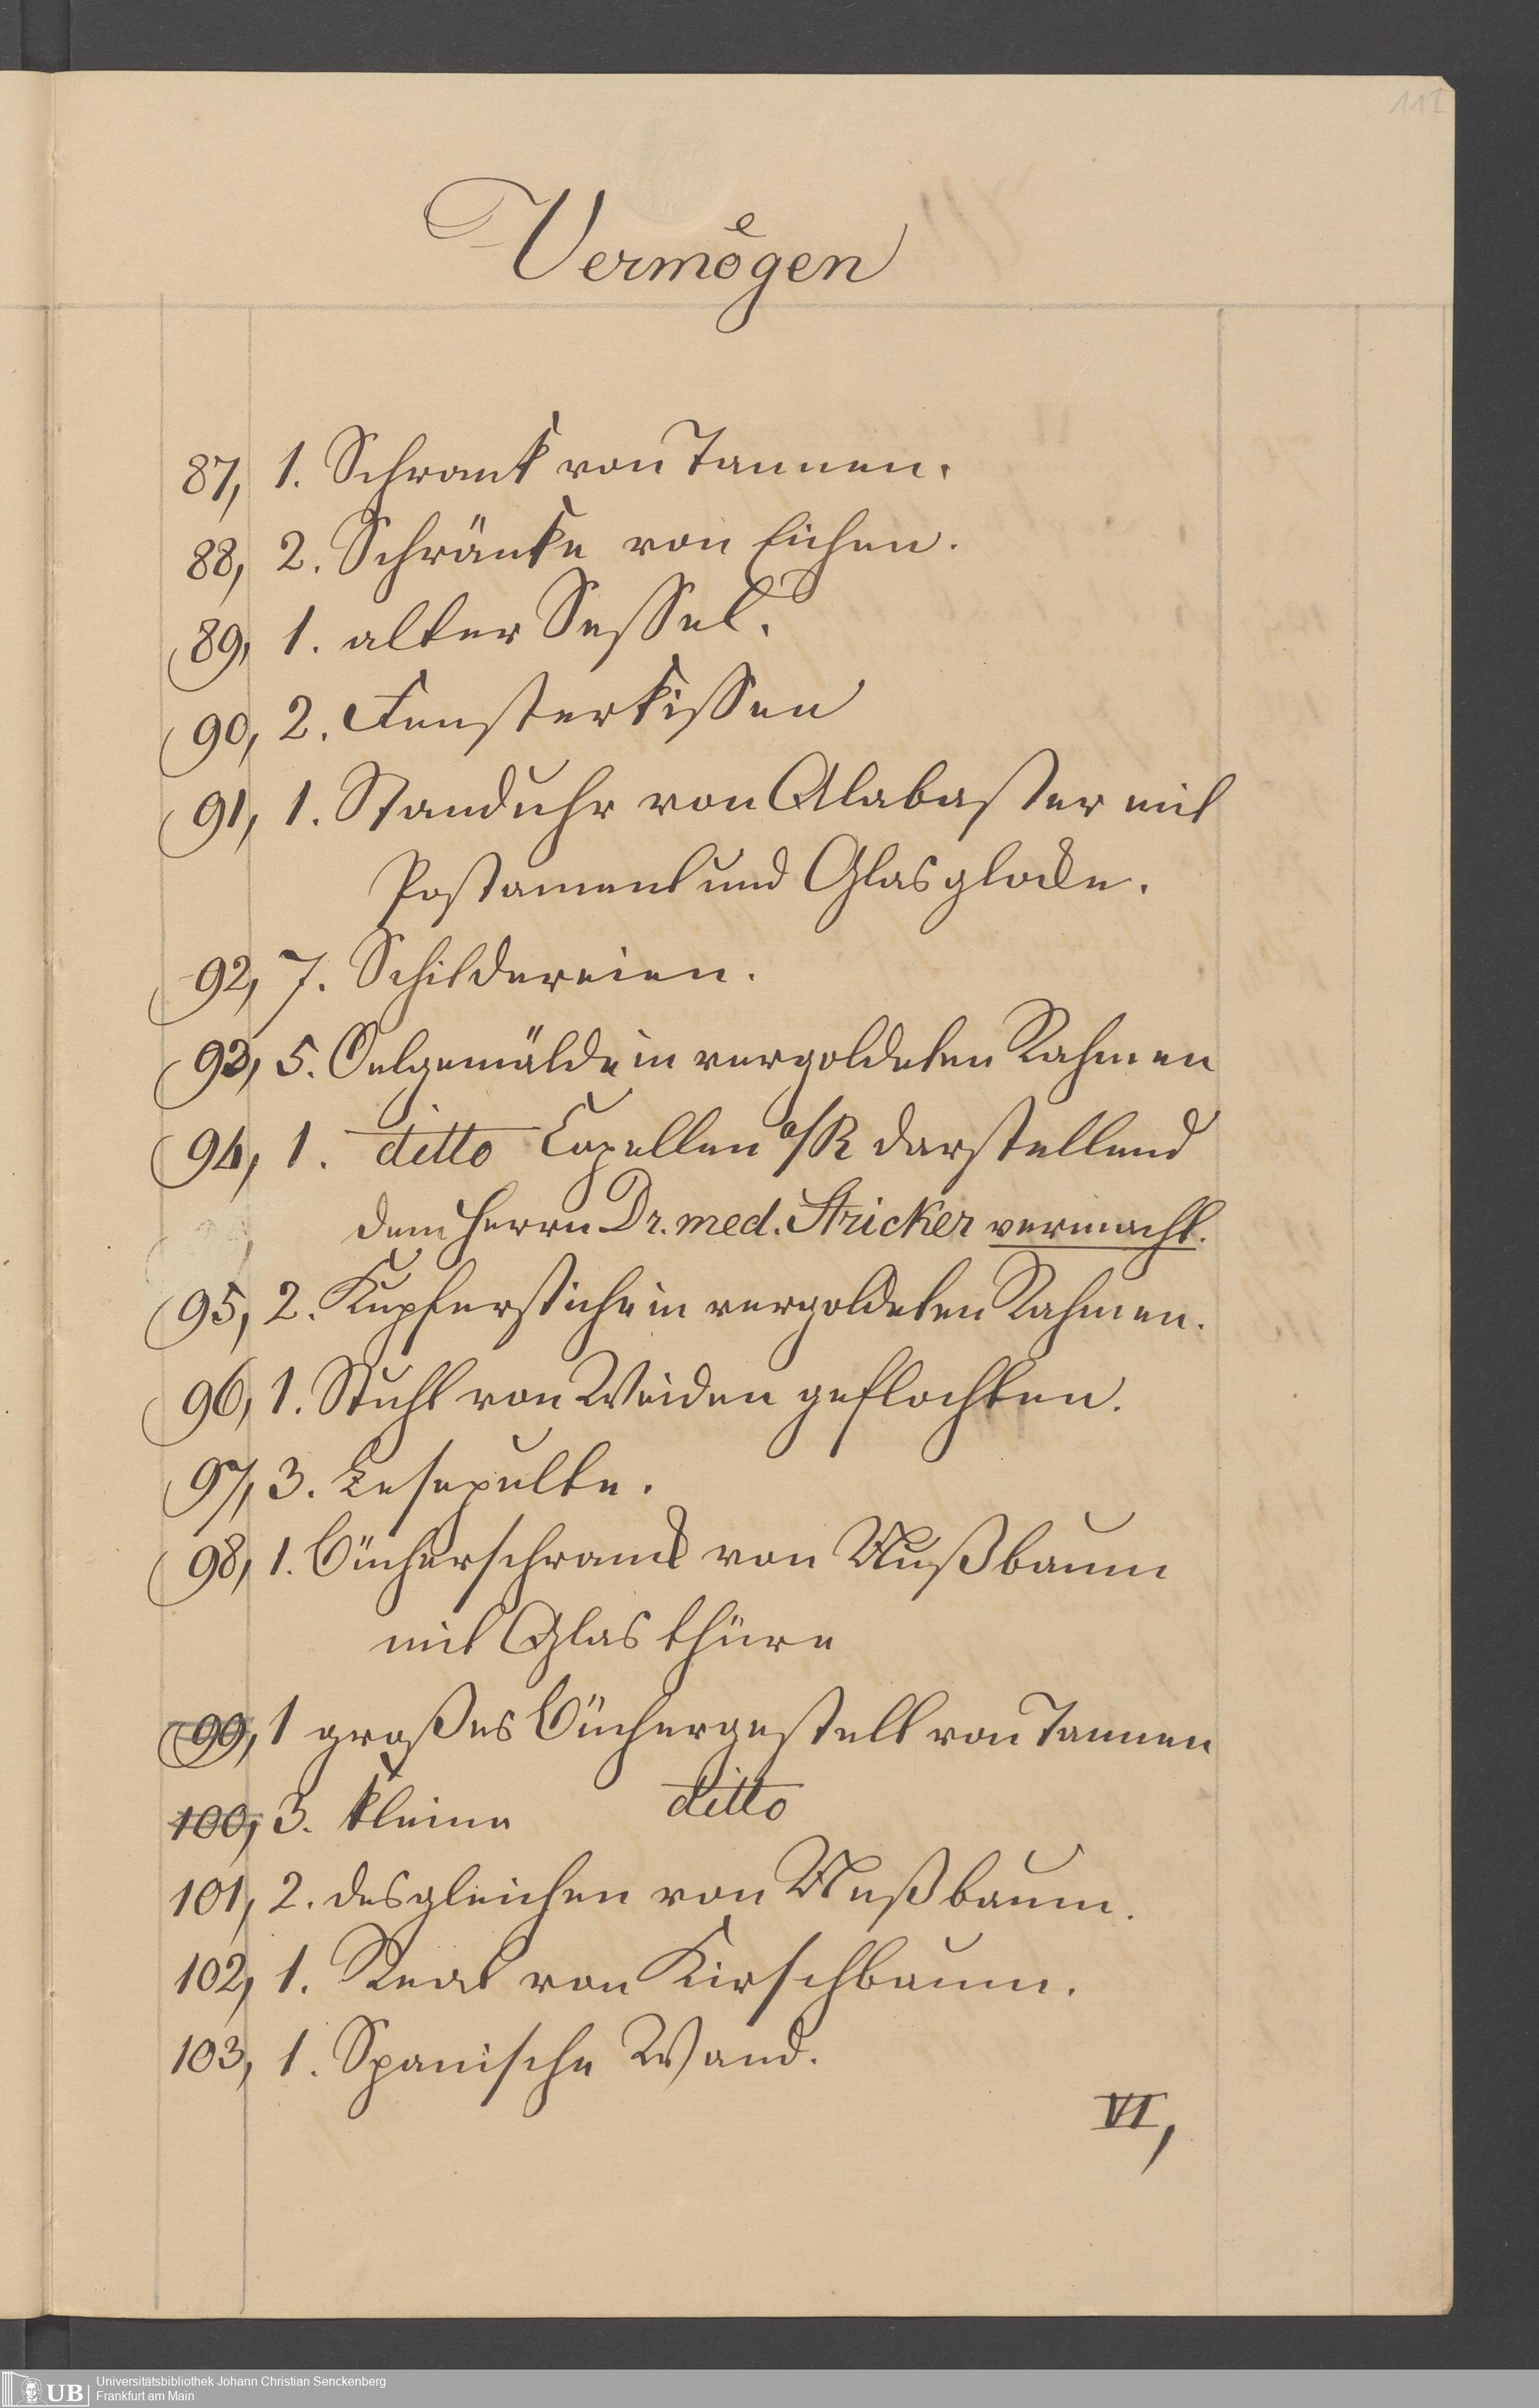 111
Vermögen
87, 1. Schrank von Tannen.
88, 2. Schränke von Eichen.
89, 1. alter Sessel.
90, 2. Fensterkissen
91, 1. Standuhr von Alabaster mit
Postament und Glasglocke.
92, 7. Schildereien.
93, 5. Oelgemälde in vergoldeten Rahmen
94, 1. ditto Capellen a/R darstellend
dem Herrn Dr. med. Stricker vermacht.
95, 2. Kupferstiche in vergoldeten Rahmen.
96, 1. Stuhl von Weiden geflochten.
97, 3. Lesepulte.
98, 1. Bücherschrank von Nußbaum
mit Glasthüre
99, 1 großes Büchergestell von Tannen
100, 3. kleine ditto
101, 2. desgleichen von Nußbaum.
102, 1. Real von Kirschbaum.
103, 1. Spanische Wand.
VI,
UB Universitätsbibliothek Johann Christian Senckenberg
Frankfurt am Main